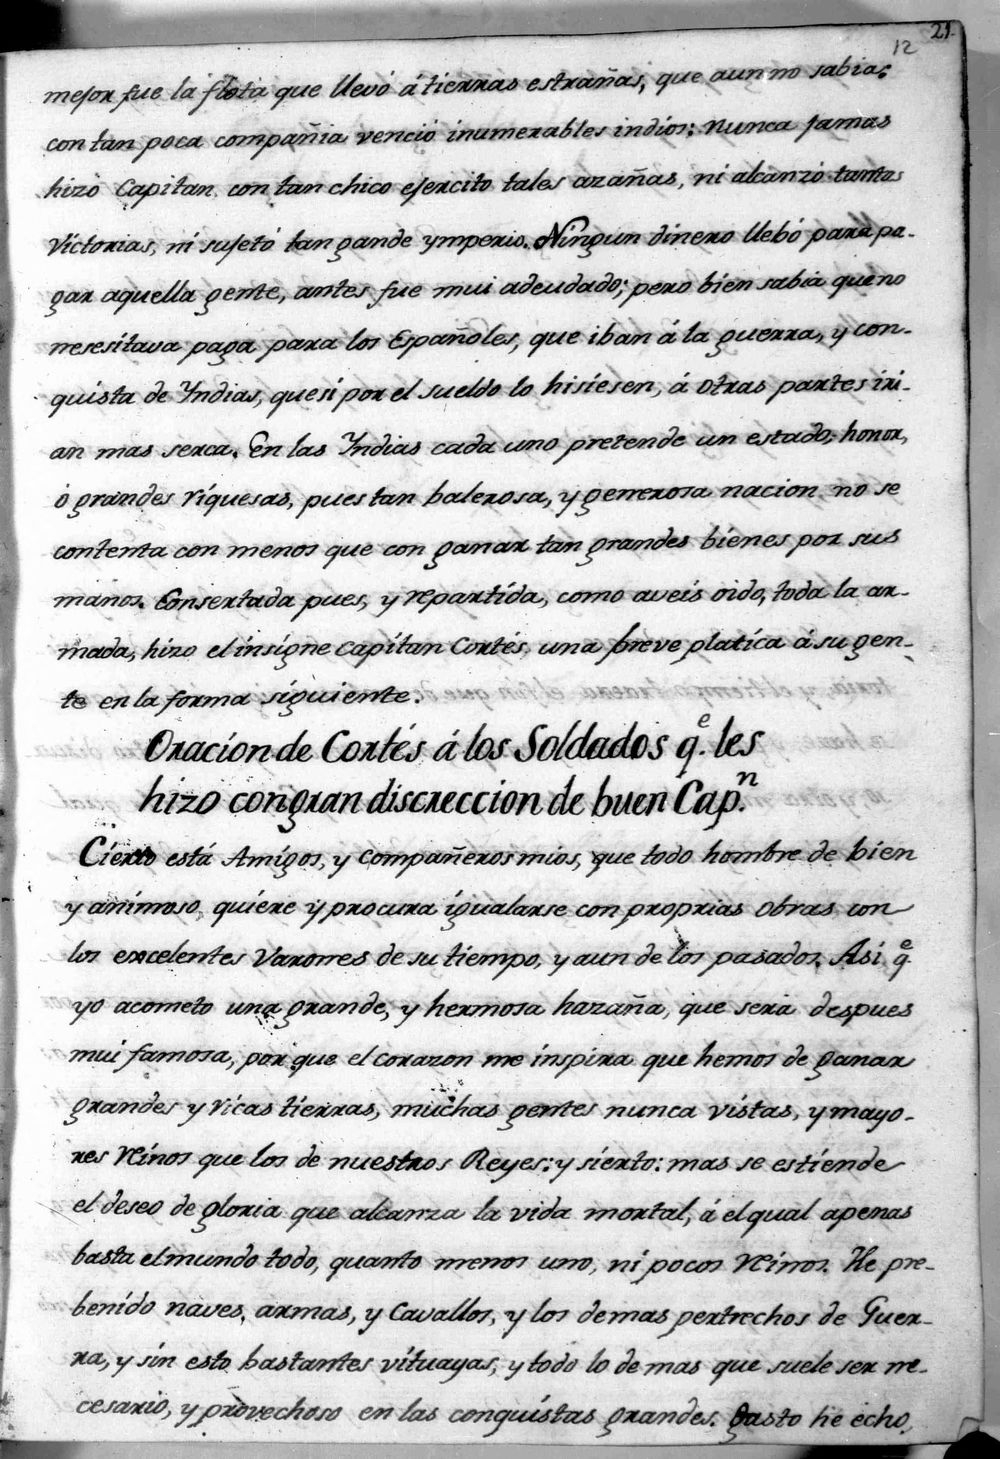 21.
12
mejor fue la flota que llevó á tierras estrañas, que aun no sabia;
con tan poca compañia venció inumerables indios; nunca jamas
hizo Capitan con tan chico ejercito tales azañas, ni alcanzó tantas
Victorias, ni sujetó tan gande ymperio. Ningun dinero llebó para pa-
gar aquella gente, antes fue mui adeudado; pero bien sabia que no
nesesitava paga para los Españoles, que iban á la guerra, y con-
quista de Yndias, que si por el sueldo lo hisiesen, á otras partes iri-
an mas serca. En las Yndias cada uno pretende un estado, honor,
ó grandes riquesas, pues tan balerosa, y generosa nacion no se
contenta con menos que con ganar tan grandes bienes por sus
manos. Consertada pues, y repartida, como aveis oido, toda la ar-
mada, hizo el insigne capitan Cortés, una breve platica á su gen-
te en la forma siguiente.
Oracion de Cortés á los Soldados q.e les
hizo con gran discreccion de buen Cap.n
Cierto está Amigos, y compañeros mios, que todo hombre de bien
y animoso, quiere y procura igualarse con proprias obras con
los excelentes Varones de su tiempo, y aun de los pasados. Asi q.e
yo acometo una grande, y hermosa hazaña, que sera despues
mui famosa, por que el corazon me inspira que hemos de ganar
grandes y ricas tierras, muchas gentes nunca vistas, y mayo-
res Reinos que los de nuestros Reyes: y sierto: mas se estiende
el deseo de gloria que alcanza la vida mortal, á el qual apenas
basta el mundo todo, quanto menos uno, ni pocos Reinos. He pre-
benido naves, armas, y Cavallos, y los demas pertrechos de Guer-
ra, y sin esto bastantes vituayas, y todo lo de mas que suele ser ne-
cesario, y provechoso en las conquistas grandes. Gasto he echo,